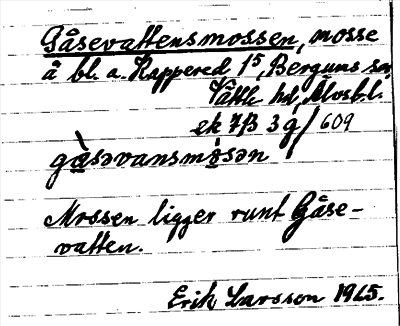 Gåsevattensmossen, mosse
å bl. a. Kappered 1⁵, Bergums sn,
Vättle hd, Älvsb.l.
ek 7B 3g/609
gåsəvansmåsən
Mossen ligger runt Gåse-
vatten.
Erik Larsson 1965.